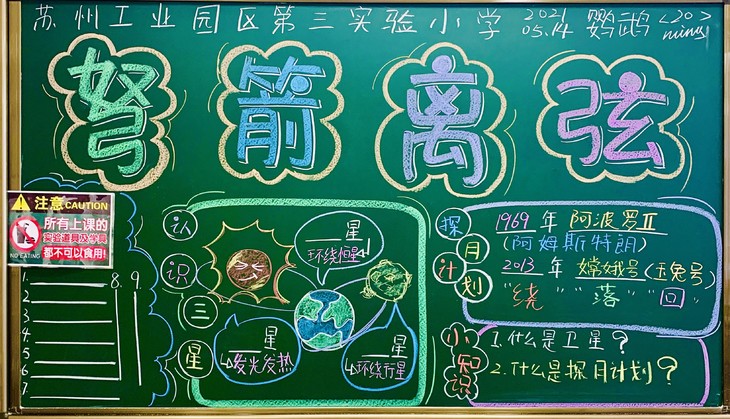 苏州工业园区第三实验小学
2021
05.14
鹦鹉
<20>
mins
努箭离弦
注意CAUTION
所有上课的
实验道具及学具
都不可以食用!
NO EATING
1.
2.
3.
4.
5.
6.
7.
8. 9.
认识三星
____星
↳环绕恒星
____星
↳发光发热
____星
↳环绕行星
探月计划
1969 年 阿波罗11
(阿姆斯特朗)
2013 年 嫦娥号(玉兔号)
"绕" "落" "回"
小知识
1.什么是卫星?
2.什么是探月计划?